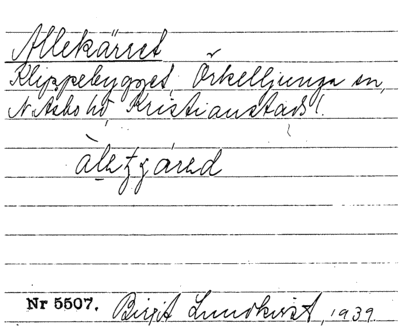 Allekärret
Klippebygget, Örkelljunga sn,
N. Åsbo hd, Kristianstads l.
Nr 5507. Birgit Lundkvist, 1939